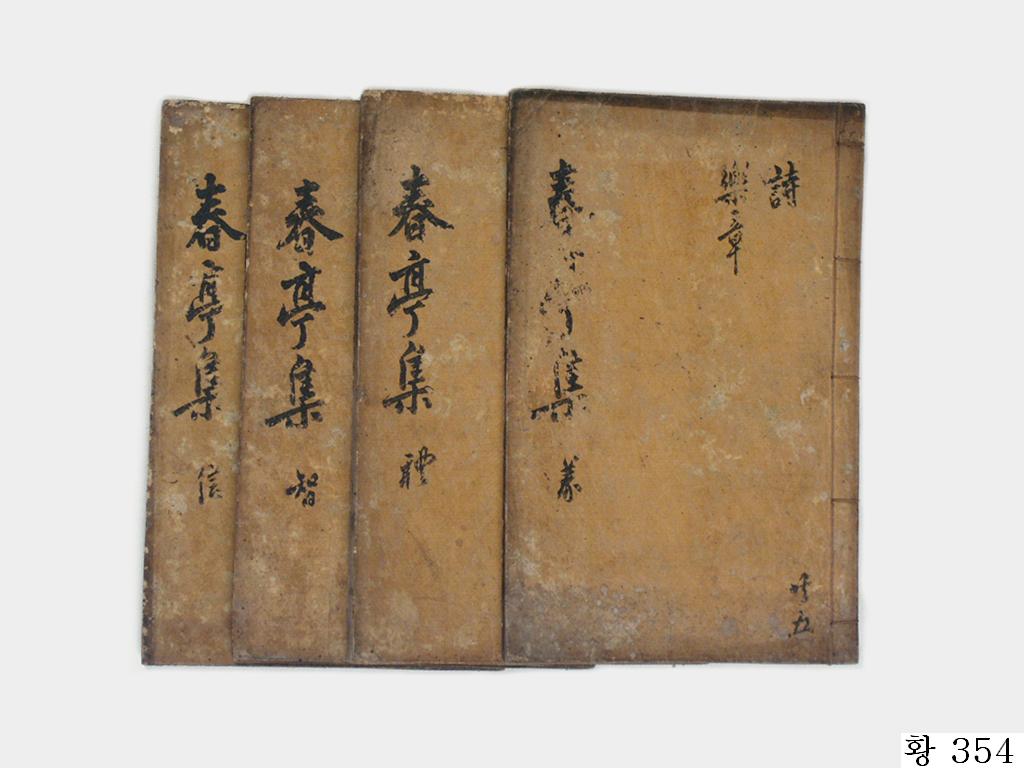 詩
樂章
春亭集 義
共五
春亭集 禮
春亭集 智
春亭集 信
황 354